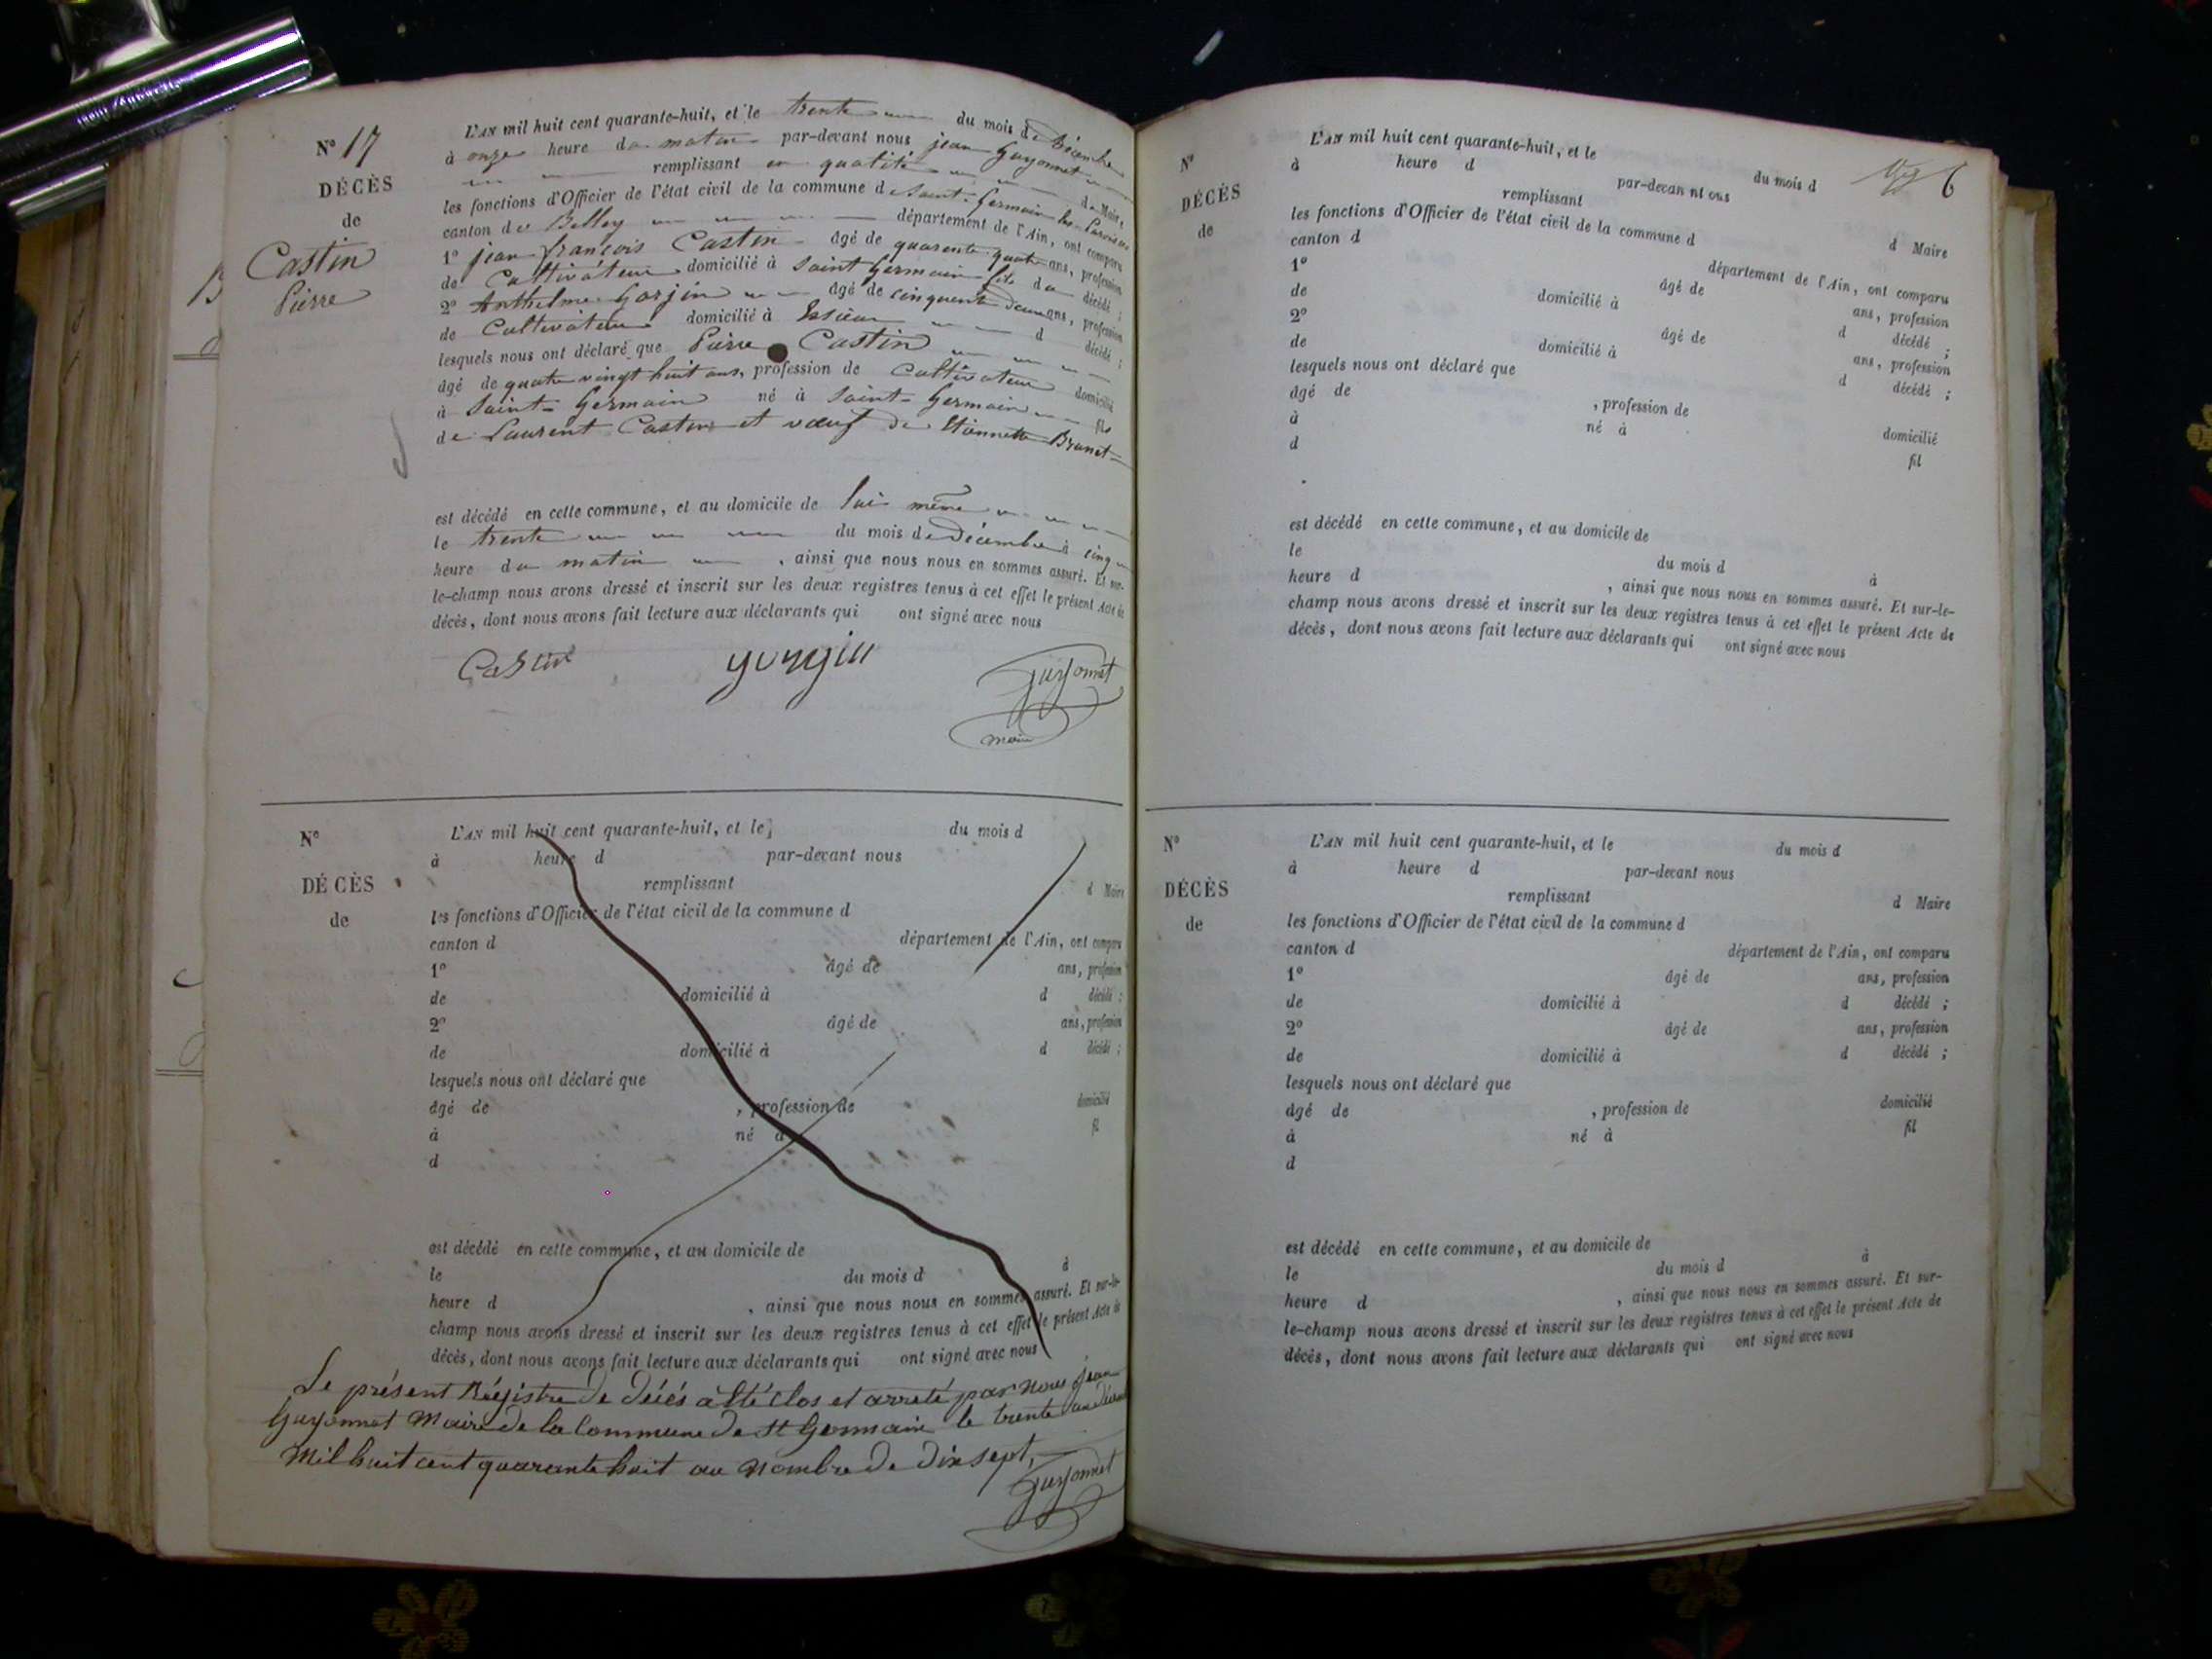 N° 17
DÉCÈS
de
Castin
Pierre
L'AN mil huit cent quarante-huit, et le trente du mois de Décembre
à onze heure du matin par-devant nous jean Guyonnet
remplissant en qualité de Maire,
les fonctions d'Officier de l'état civil de la commune de Saint-Germain les Paroisses
canton de Belley département de l'Ain, ont comparu
1° jean françois Castin âgé de quarente quatre ans, profession
de Cultivateur domicilié à Saint Germain fils du décédé ;
2° Anthelme Gorjin âgé de cinquente deux ans, profession
de Cultivateur domicilié à Essieux d décédé ;
lesquels nous ont déclaré que Pierre Castin
âgé de quatre vingt huit ans, profession de Cultivateur domicilié
à Saint-Germain né à Saint-Germain fils
de Laurent Castin et vœuf de Etiennette Brunet
est décédé en cette commune, et au domicile de lui même
le trente du mois de Décembre à cinq
heure du matin , ainsi que nous nous en sommes assuré. Et sur-
le-champ nous avons dressé et inscrit sur les deux registres tenus à cet effet le présent Acte de
décès, dont nous avons fait lecture aux déclarants qui ont signé avec nous
Castin gorgin Guyonnet
maire
N°
DÉCÈS
de
L'AN mil huit cent quarante-huit, et le du mois d
à heure d par-devant nous
remplissant d Maire
les fonctions d'Officier de l'état civil de la commune d
canton d département de l'Ain, ont comparu
1° âgé de ans, profession
de domicilié à d décédé ;
2° âgé de ans, profession
de domicilié à d décédé ;
lesquels nous ont déclaré que
âgé de , profession de domicilié
à né à fil
d
est décédé en cette commune, et au domicile de
le du mois d à
heure d , ainsi que nous nous en sommes assuré. Et sur-le-
champ nous avons dressé et inscrit sur les deux registres tenus à cet effet le présent Acte de
décès, dont nous avons fait lecture aux déclarants qui ont signé avec nous
Le présent Régistre de décés à été clos et arreté par nous jean
Guyonnet Maire de la Commune de St Germain le trente un décembre
Mil huit cent quarante huit au nombre de dix sept,
Guyonnet
6
N°
DÉCÈS
de
L'AN mil huit cent quarante-huit, et le du mois d
à heure d par-devan nt ous
remplissant d Maire
les fonctions d'Officier de l'état civil de la commune d
canton d département de l'Ain, ont comparu
1° âgé de ans, profession
de domicilié à d décédé ;
2° âgé de ans, profession
de domicilié à d décédé ;
lesquels nous ont déclaré que
âgé de , profession de domicilié
à né à fil
d
est décédé en cette commune, et au domicile de
le du mois d à
heure d , ainsi que nous nous en sommes assuré. Et sur-le-
champ nous avons dressé et inscrit sur les deux registres tenus à cet effet le présent Acte de
décès, dont nous avons fait lecture aux déclarants qui ont signé avec nous
N°
DÉCÈS
de
L'AN mil huit cent quarante-huit, et le du mois d
à heure d par-devant nous
remplissant d Maire
les fonctions d'Officier de l'état civil de la commune d
canton d département de l'Ain, ont comparu
1° âgé de ans, profession
de domicilié à d décédé ;
2° âgé de ans, profession
de domicilié à d décédé ;
lesquels nous ont déclaré que
âgé de , profession de domicilié
à né à fil
d
est décédé en cette commune, et au domicile de
le du mois d à
heure d , ainsi que nous nous en sommes assuré. Et sur-
le-champ nous avons dressé et inscrit sur les deux registres tenus à cet effet le présent Acte de
décès, dont nous avons fait lecture aux déclarants qui ont signé avec nous